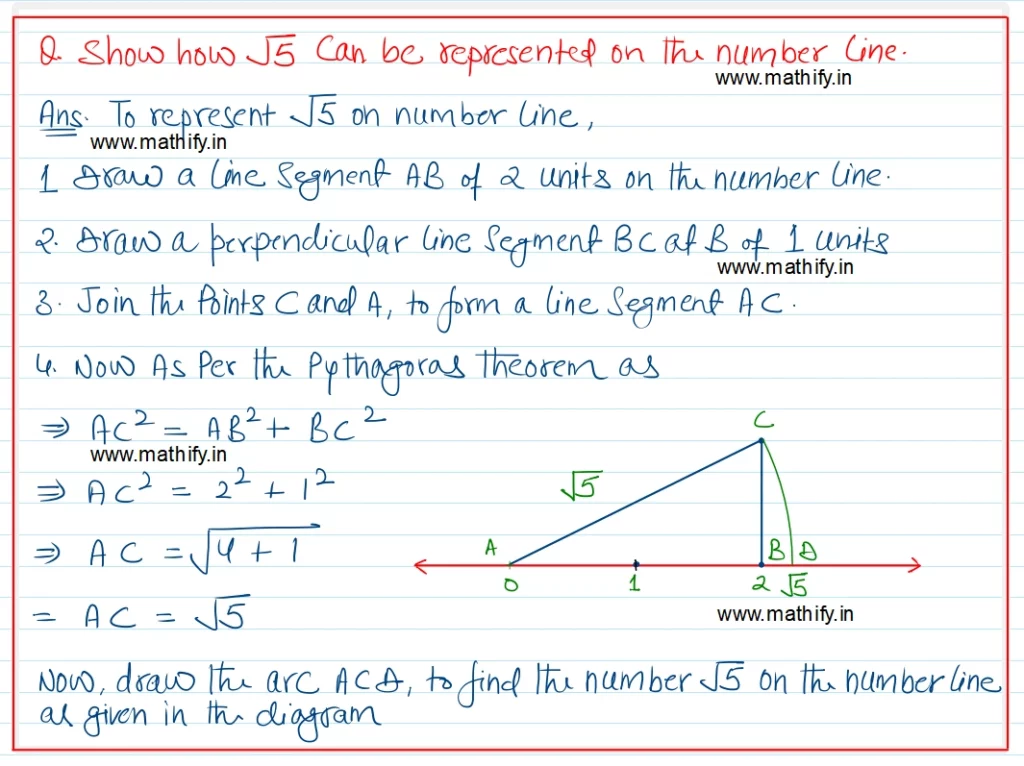 Q. Show how √5 Can be represented on the number line.
www.mathify.in
Ans. To represent √5 on number line,
www.mathify.in
1 Draw a line Segment AB of 2 units on the number line.
2. Draw a perpendicular line Segment BC at B of 1 units
www.mathify.in
3. Join the Points C and A, to form a line Segment AC.
4. Now As Per the Pythagoras Theorem as
⇒ AC² = AB² + BC²
www.mathify.in
⇒ AC² = 2² + 1²
⇒ AC = √4 + 1
= AC = √5
C
√5
A B D
0 1 2 √5
www.mathify.in
Now, draw the arc ACD, to find the number √5 on the number line
as given in the diagram